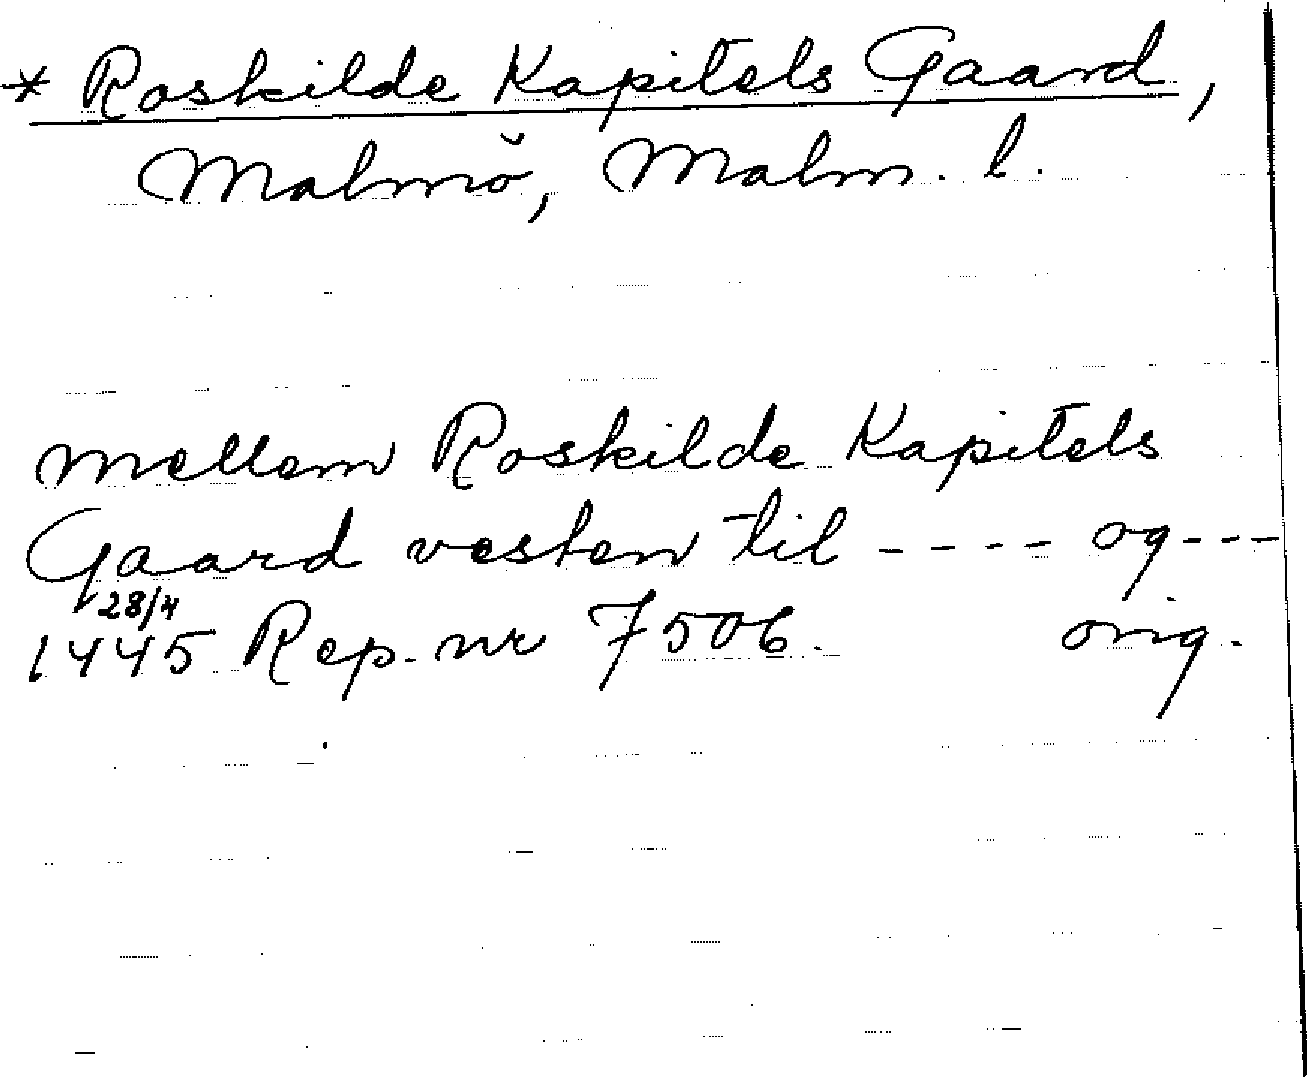 * Roskilde Kapitels Gaard,
Malmö, Malm. l.
mellem Roskilde Kapitels
Gaard vesten til - - - - og - - -
28/4
1445 Rep. nr 7506. orig.